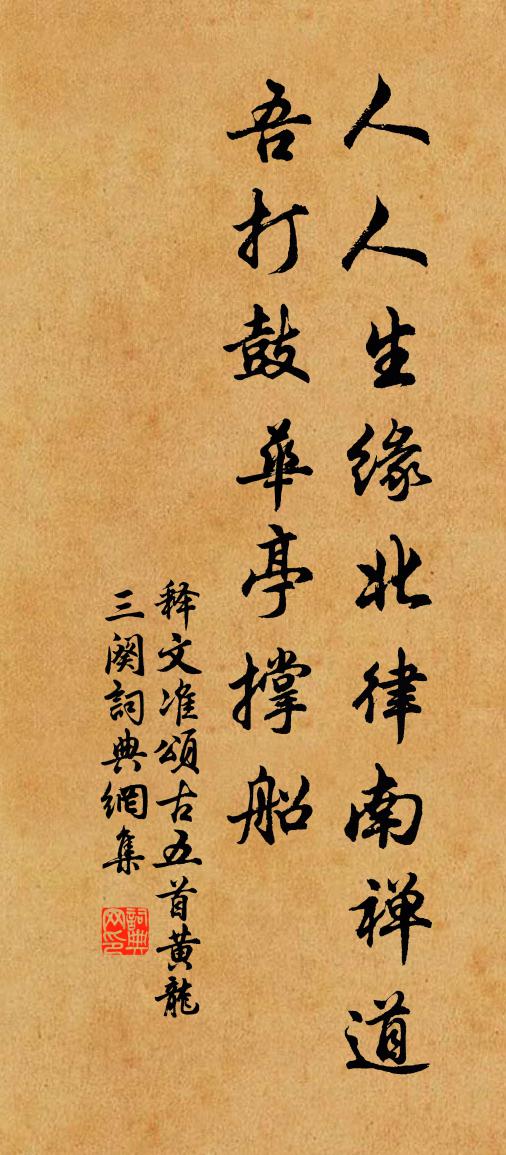 人人生缘北律南禅道
吾打鼓華亭撑船
释文准頌古五首黄龍
三関詞典網集
詞典
网印